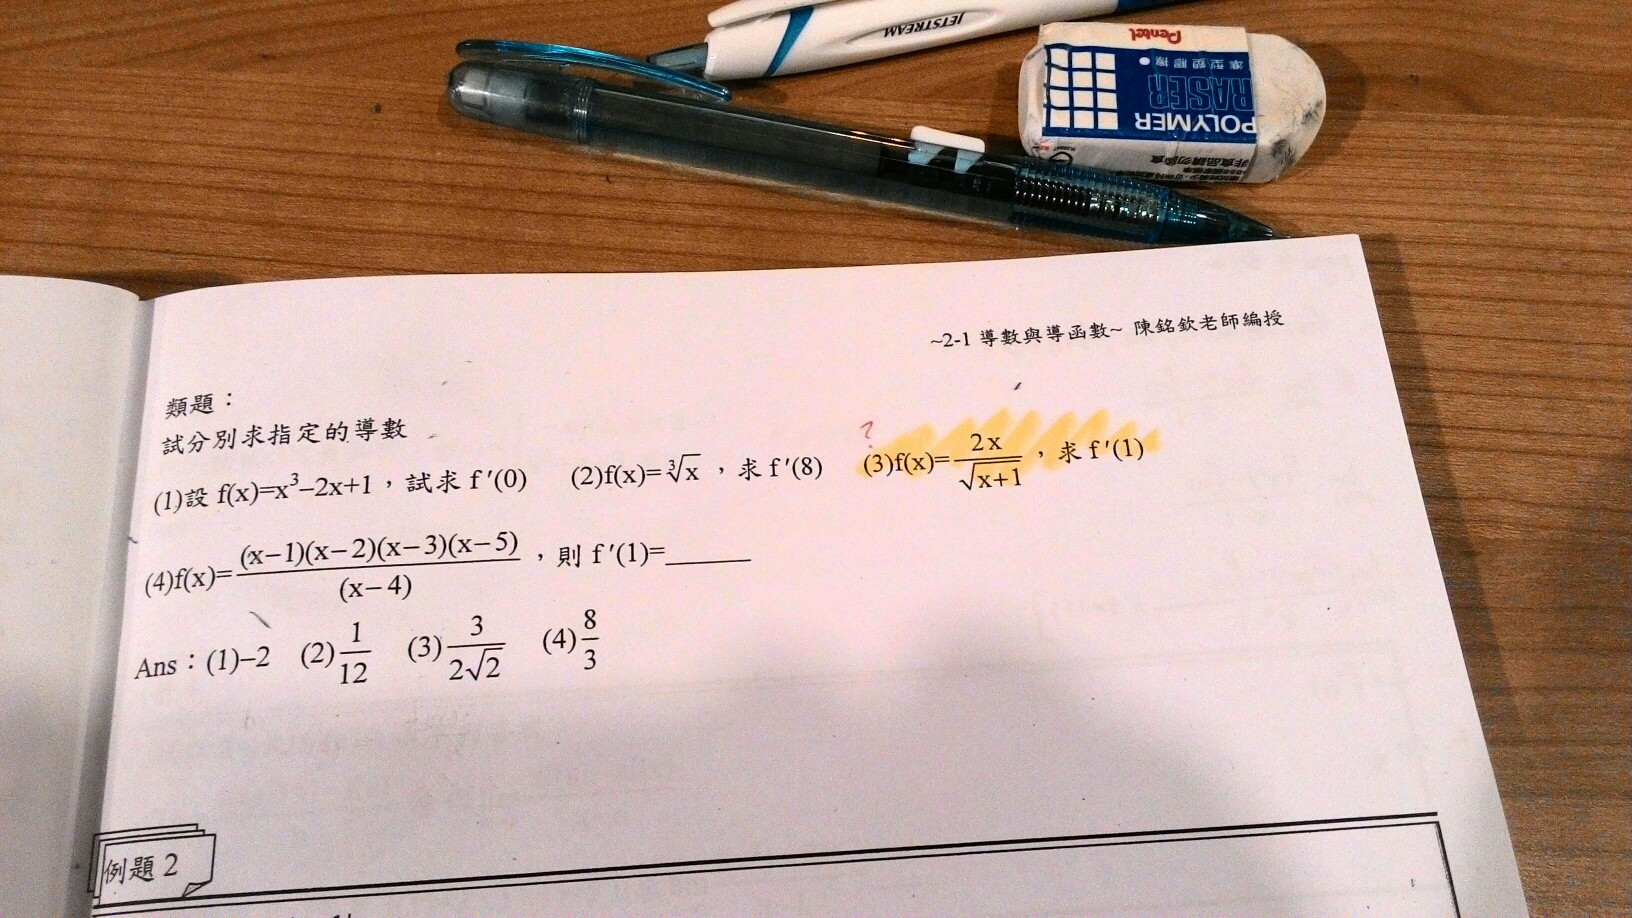 JETSTREAM
Pentel
準型塑膠擦
ERASER
POLYMER
非食品請勿飲食
~2-1 導數與導函數~ 陳銘欽老師編授
類題：
試分別求指定的導數
(1)設 f(x)=x³–2x+1，試求 f′(0) (2)f(x)=∛x，求 f′(8) ? (3)f(x)=2x/√(x+1)，求 f′(1)
(4)f(x)=(x–1)(x–2)(x–3)(x–5)/(x–4)，則 f′(1)=______
Ans：(1)–2 (2)1/12 (3)3/(2√2) (4)8/3
例題 2